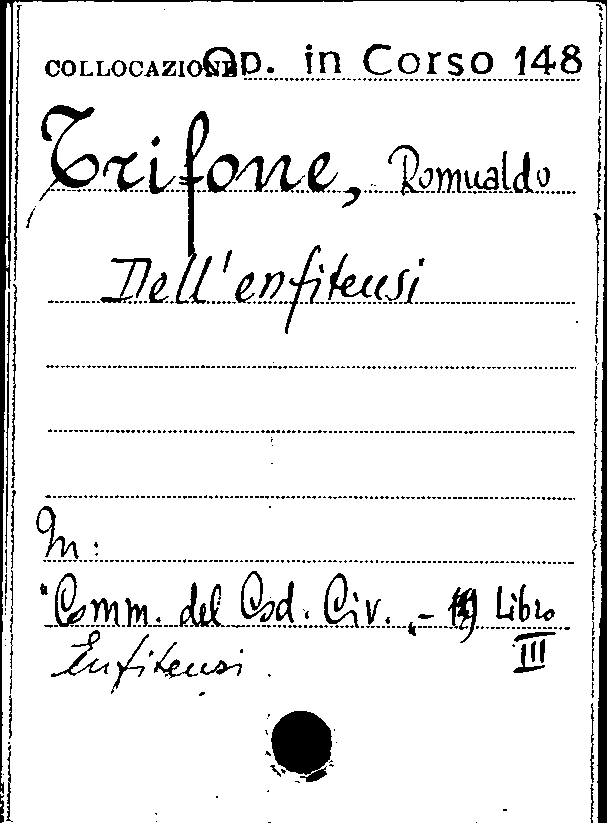 COLLOCAZIONE Op. in Corso 148
Trifone, Romualdo
Dell'enfiteusi
In:
"Comm. del Cod. Civ. „ - Libro
III
Enfiteusi.